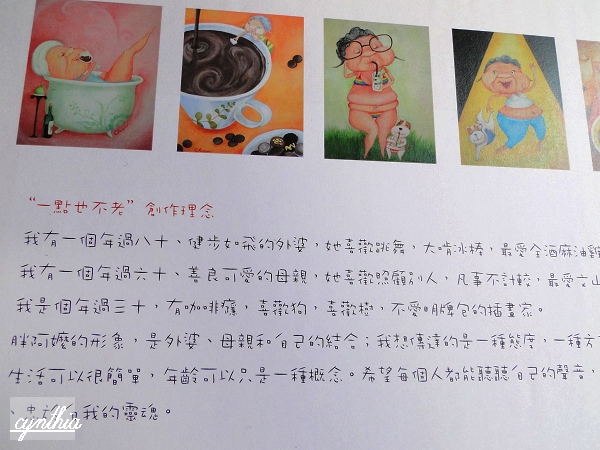 “一點也不老”創作理念
我有一個年過八十、健步如飛的外婆，她喜歡跳舞，大啃冰棒，最愛全酒麻油雞
我有一個年過六十、善良可愛的母親，她喜歡照顧別人，凡事不計較，最愛文山
我是個年過三十，有咖啡癮，喜歡狗，喜歡樹，不愛名牌包的插畫家。
胖阿嬤的形象，是外婆、母親和自己的結合；我想傳達的是一種態度，一種方
生活可以很簡單，年齡可以只是一種概念。希望每個人都能聽聽自己的聲音，
、忠於自我的靈魂。
cynthia